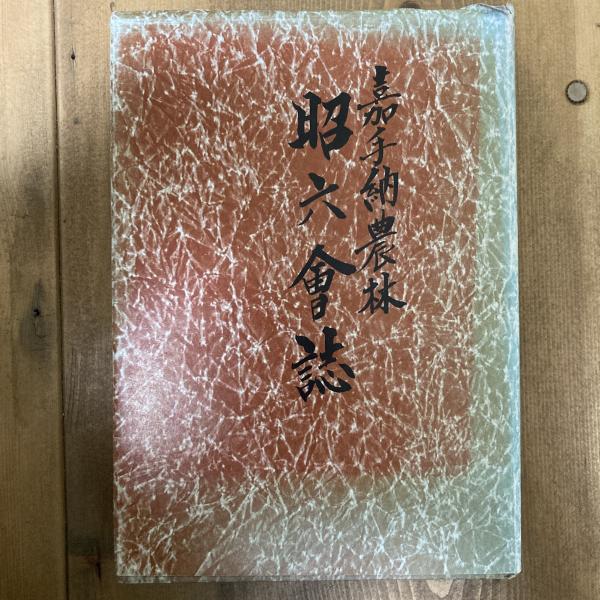 嘉手納農林
昭六會誌